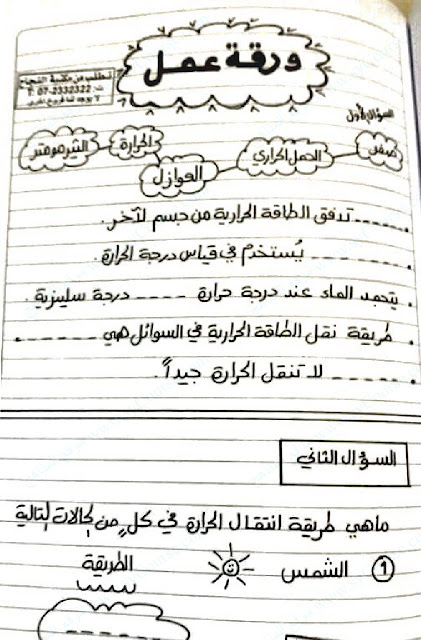 ورقة عمل
تطلب من مكتبة النجاح
ت: 07-2332322
لا يوجد لنا فروع اخرى
السؤال الأول
صفر
الحمل الحراري
العوازل
الحرارة
الثيرمومتر
------ تدفق الطاقة الحرارية من جسم لآخر.
------ يُستخدم في قياس درجة الحرارة.
يتجمد الماء عند درجة حرارة ---- درجة سليزية.
طريقة نقل الطاقة الحرارية في السوائل هي ------
------ لا تنقل الحرارة جيداً.
السؤال الثاني
ماهي طريقة انتقال الحرارة في كلٍ من الحالات التالية
1 الشمس
الطريقة
-----